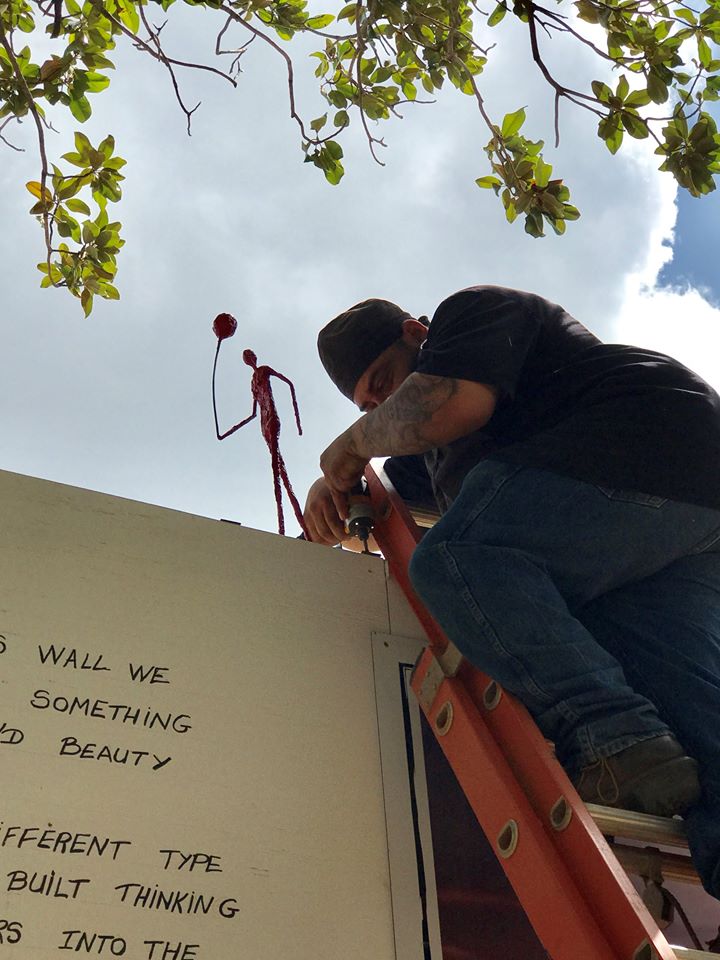 WALL WE
SOMETHING
BEAUTY
DIFFERENT TYPE
BUILT THINKING
INTO THE